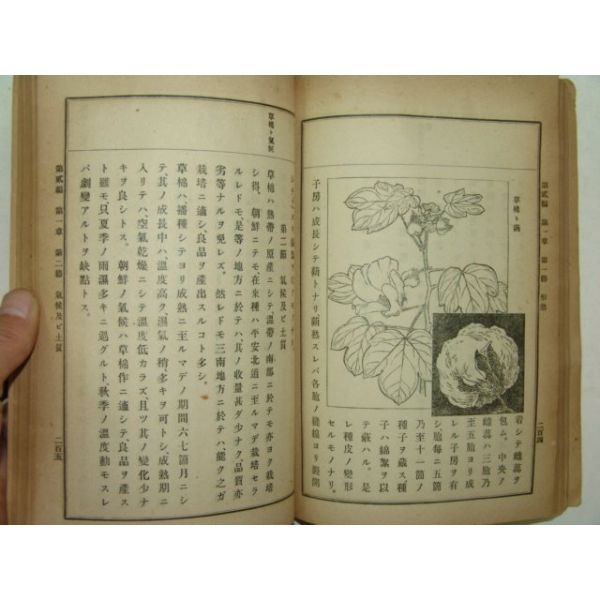 第貳編 第一章 第一節 形態
二百四
草棉ト蒴
着シテ雌蕋ヲ
包ム。中央ノ
雌蕋ハ三胞乃
至五胞ヨリ成
レル子房ヲ有
シ胞毎ニ五箇
乃至十一箇ノ
種子ヲ藏ス種
子ハ綿絮ヲ以
テ蔽ハル。是
レ種皮ノ變形
セルモノナリ。
子房ハ成長シテ蒴トナリ蒴熟スレバ各胞ノ縫線ヨリ綻開
草棉ト氣候
第二節 氣候及ビ土質
草棉ハ熱帶ノ原產ニシテ、溫帶ノ南部ニ於テモ亦ヨク栽培
シ得、朝鮮ニテモ在來種ハ平安北道ニ至ルマデ栽培セラ
ルレドモ、是等ノ地方ニ於テハ其ノ收量甚ダ少ナク、品質亦
劣等ナルヲ免レズ。然レドモ三南地方ニ於テハ、能ク之ガ
栽培ニ適シ、良品ヲ產出スルコト多シ。
草棉ハ、播種シテヨリ成熟ニ至ルマデノ期間六七箇月ニシ
テ、其ノ成長中ハ溫度高ク、濕氣ノ稍多キヲ可トシ、成熟期ニ
入リテハ、空氣乾燥ニシテ溫度低カラズ、且ツ其ノ變化少ナ
キヲ良シトス。朝鮮ノ氣候ハ草棉作ニ適シテ、良品ヲ產ス
ト雖モ、只夏季ノ雨濕多キニ過グルト、秋季ノ溫度動モスレ
バ劇變アルトヲ缺點トス。
第貳編 第一章 第二節 氣候及ビ土質
二百五